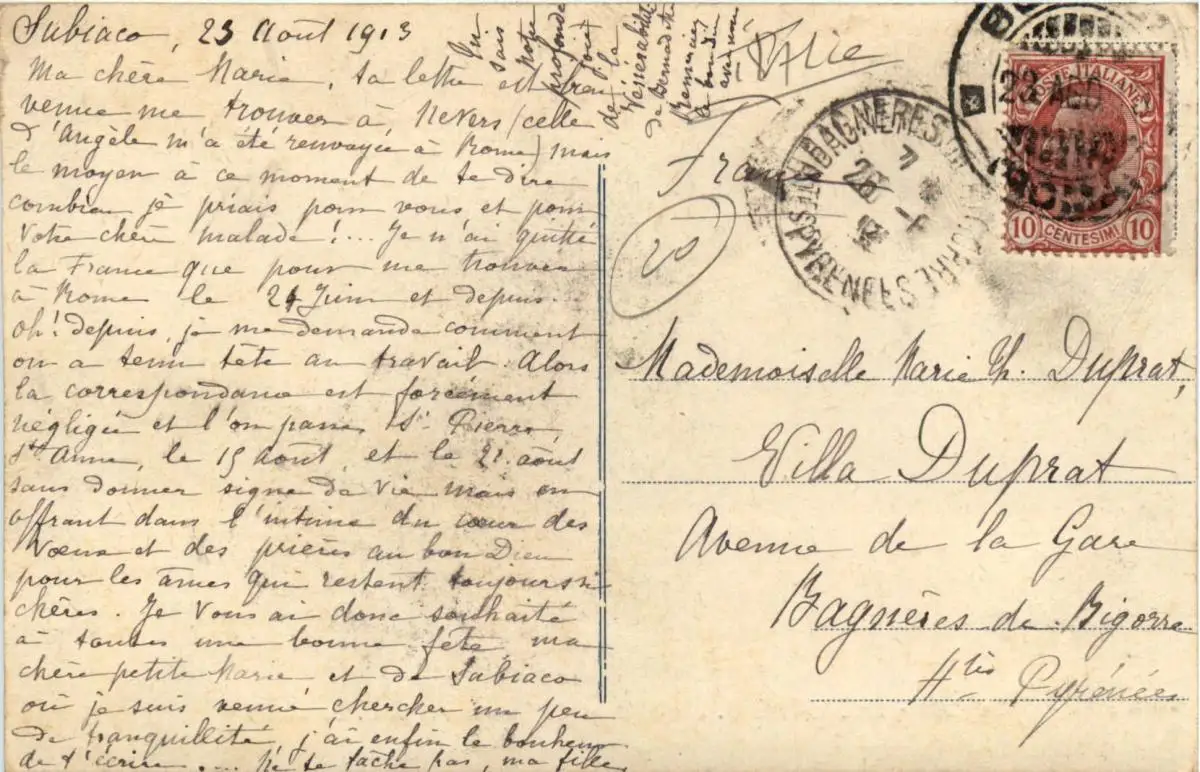 Subiaco, 23 Août 1913
Ma chère Marie, ta lettre est bien
venue me trouver à Nevers (celle
d'Angèle m'a été renvoyée à Rome) mais
le moyen à ce moment de te dire
combien je priais pour vous et pour
votre chère malade!... Je n'ai quitté
la France que pour me trouver
à Rome le 24 Juin et depuis...
oh! depuis, je me demande comment
on a tenu tête au travail. Alors
la correspondance est forcément
négligée et l'on passe St Pierre,
Ste Anne, le 15 Août, et le 21 août
sans donner signe de vie mais en
offrant dans l'intime du cœur des
vœux et des prières au bon Dieu
pour les âmes qui restent toujours si
chères. Je vous ai donc souhaité
à toutes une bonne fête, ma
chère petite Marie et de Subiaco
où je suis venue chercher un peu
de tranquillité j'ai enfin le bonheur
de t'écrire.... Ne te fâche pas, ma fille
sais
notre
profonde
joie
de la
Vénérabilité
de Bernadette
Remerciez
le bon Dieu
Italie
France
20
POSTE ITALIANE
10 CENTESIMI 10
23 AGO
ROMA
BAGNERES DE BIGORRE
HTES PYRENEES
Mademoiselle Marie Th. Duprat,
Villa Duprat
Avenue de la Gare
Bagnères de Bigorre
Htes Pyrénées